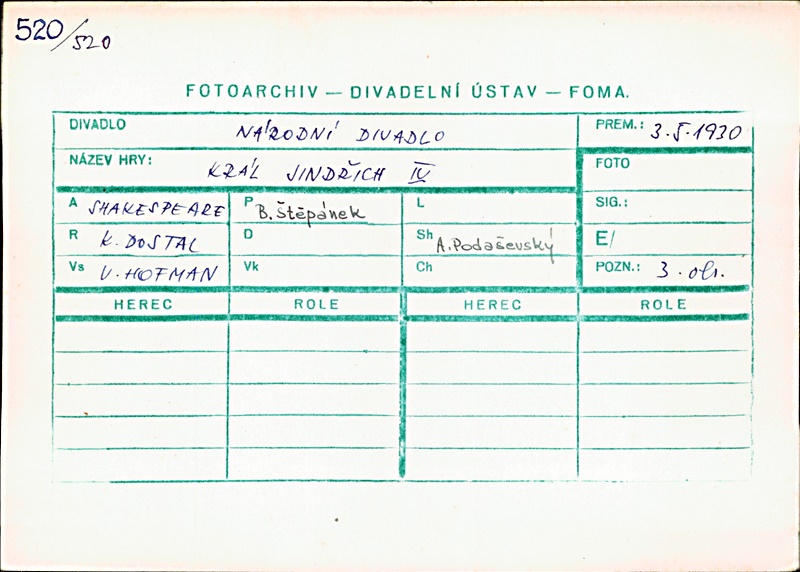 520/520
FOTOARCHIV — DIVADELNÍ ÚSTAV — FOMA.
DIVADLO NÁRODNÍ DIVADLO PREM.: 3.5.1930
NÁZEV HRY: KRÁL JINDŘICH IV FOTO
A SHAKESPEARE P B. Štěpánek L SIG.:
R K. DOSTAL D Sh A. Podaševský E/
Vs V. HOFMAN Vk Ch POZN.: 3. obr.
HEREC ROLE HEREC ROLE